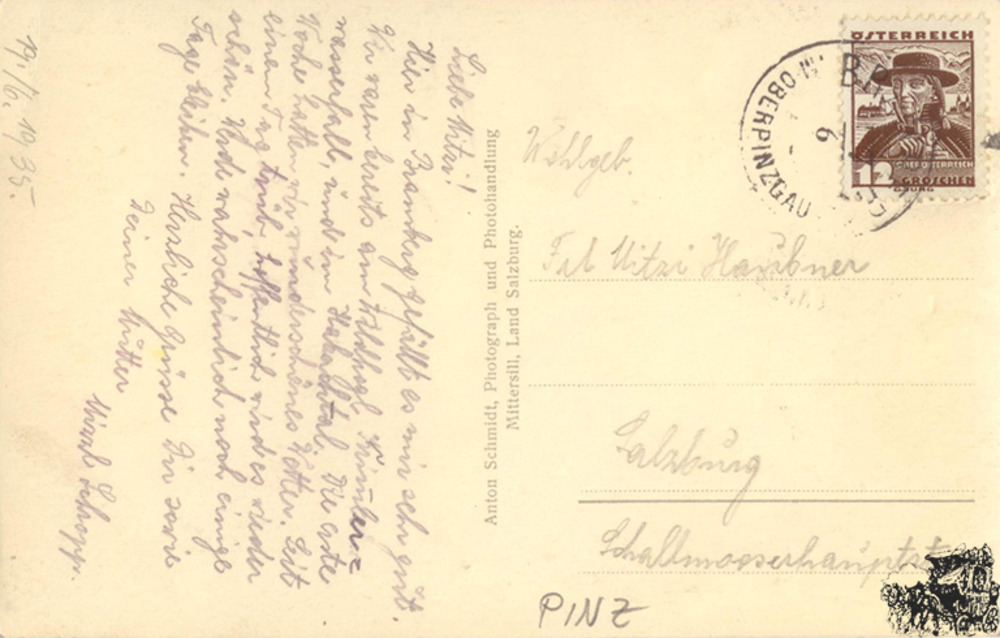 19./6. 1935.
Liebe Mitzi!
Hier in Bramberg gefällt es mir sehr gut.
Wir waren bereits am Wildkogl, Krimler=
wasserfall, und im Habachtal. Die erste
Woche hatten wir wunderschönes Wetter. Seit
einem Tag trüb hoffentlich wird es wieder
schön. Werde wahrscheinlich noch einige
Tage bleiben. Herzliche Grüsse Dir sowie
Deiner Mutter
Mizzl
Anton Schmidt, Photograph und Photohandlung
Mittersill, Land Salzburg.
ÖSTERREICH
OBERÖSTERREICH
12 GROSCHEN
OBERPINZGAU
Wohlgeb.
Frl Mitzi Haubner
Salzburg
Schallmooserhauptstr
PINZ